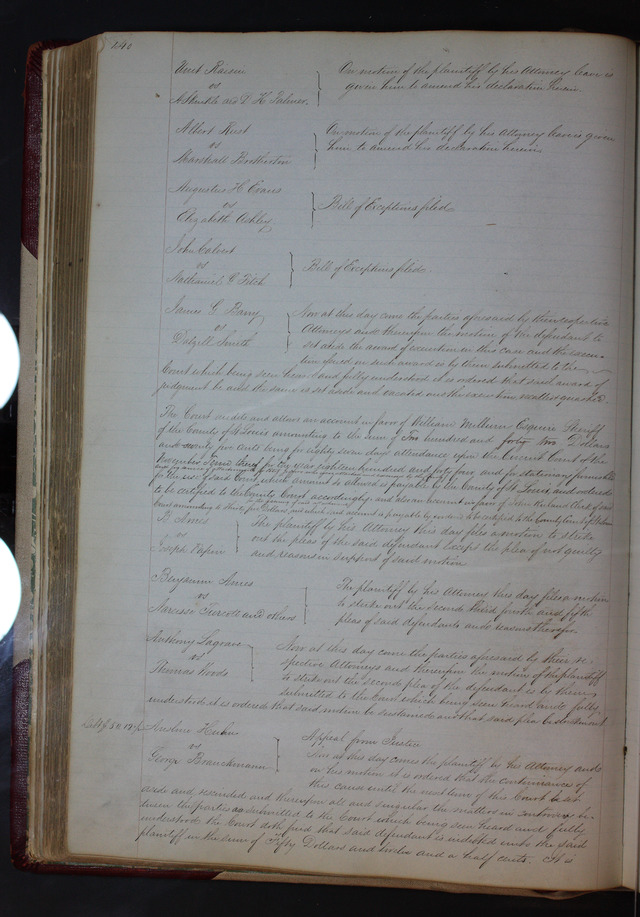 240
On motion of the plaintiff by his Attorney leave is
vs
given him to amend his declaration herein.
D. K. Palmer.
Albert Rust
On motion of the plaintiff by his Attorney leave is given
vs
him to amend his declaration herein
Marshall Brotherton
Augustus H Evans
vs
Bill of Exceptions filed.
Elizabeth Ashley
John Calvert
vs
Bill of Exceptions filed.
Nathaniel E Fitch
James G Barry
Now at this day come the parties aforesaid by their respective
vs
Attorneys and thereupon the motion of the defendant to
Dalzell Smith
set aside the award of execution in this case and the execu-
tion issued on such award is by them submitted to the
Court which being seen heard and fully understood it is ordered that said award of
judgment be and the same is set aside and vacated and the execution quashed.
The Court audits and allows an account in favor of William Milburn Esquire Sheriff
of the County of St Louis amounting to the sum of Two hundred and forty two Dollars
and seventy five cents being for eighty seven days attendance upon the Circuit Court of the
November Term in the year eighteen hundred and forty four and for stationery furnished
for the use of said Court which amount so allowed is payable by the County of St Louis and ordered
to be certified to the County Court accordingly and also an account in favor of John Ruland Clerk of said
Court amounting to Dollars which said account is payable by and ordered to be certified to the County Court of St Louis
The plaintiff by his Attorney this day files a motion to strike
vs
out the pleas of the said defendant except the plea of not guilty
Joseph Papin
and reasons in support of said motion
Benjamin Ames
The plaintiff by his Attorney this day files a motion
vs
to strike out the second third fourth and fifth
Narcisse Turcotte and others
pleas of said defendants and reasons therefor.
Anthony Lagrave
Now at this day come the parties aforesaid by their re
vs
spective Attorneys and thereupon the motion of the plaintiff
Thomas Woods
to strike out the second plea of the defendant is by them
submitted to the Court which being seen heard and fully
understood it is ordered that said motion be sustained and that said plea be stricken out
Andrew Huber
Appeal from Justice
vs
Now at this day comes the plaintiff by his Attorney and
George Branckmann
on his motion it is ordered that the continuance of
this cause until the next term of this Court be set
aside and rescinded and thereupon all and singular the matters in controversy be-
tween the parties are submitted to the Court which being seen heard and fully
understood, the Court doth find that said defendant is indebted unto the said
plaintiff in the sum of Fifty Dollars and twelve and a half cents. It is